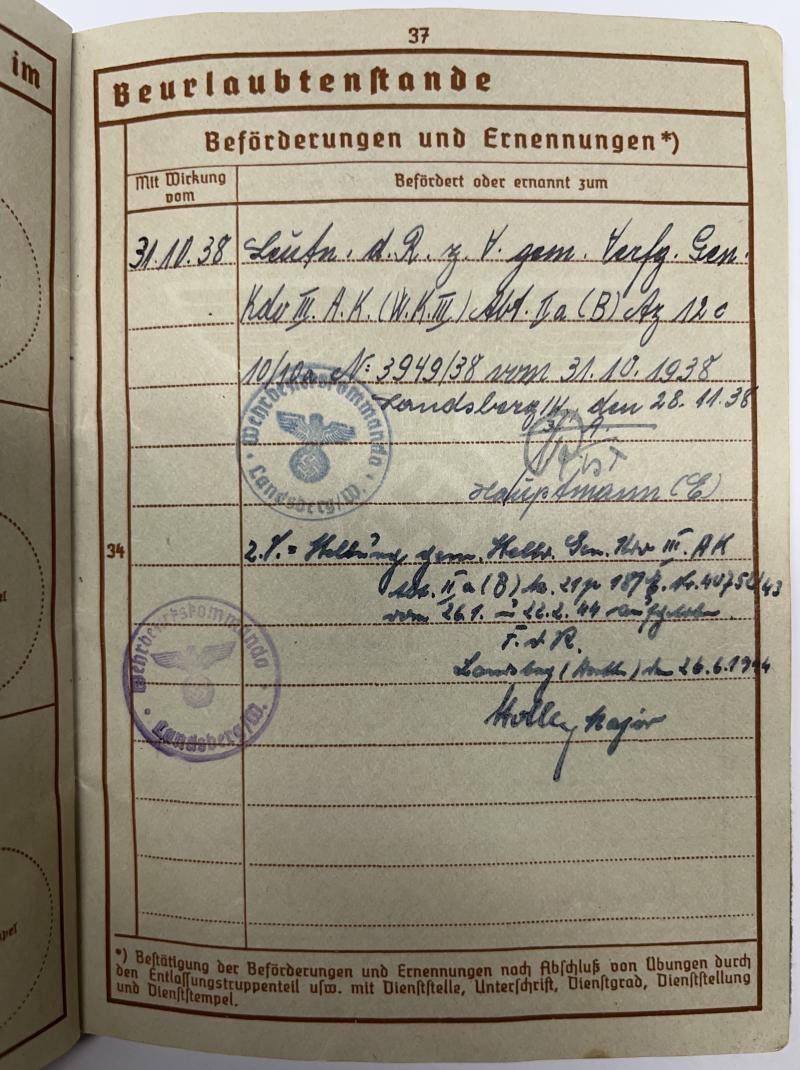 im
37
Beurlaubtenstande
Beförderungen und Ernennungen*)
Mit Wirkung vom
Befördert oder ernannt zum
31.10.38 Leutn. d. R. z. V. gem. Verfg. Gen.
Kdo III. A.K. (W.K.III) Abt. IIa (B) Az 12c
10/10a N: 3949/38 vom 31.10.1938
Landsberg/W., den 28.11.38
Hauptmann (E)
Wehrbezirkskommando
Landsberg/W.
34
z.V. = Stellung gem. Gen. Kdo III. AK
IIa
vom 26.1. 22.2.44 aufgehoben.
F. d. R.
Landsberg (Warthe) den 26.6.1944
Major
Wehrbezirkskommando
Landsberg/W.
*) Bestätigung der Beförderungen und Ernennungen nach Abschluß von Übungen durch
den Entlassungstruppenteil usw. mit Dienststelle, Unterschrift, Dienstgrad, Dienststellung
und Dienststempel.